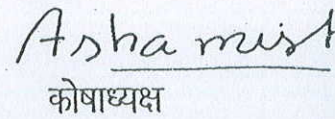 Asha mist
कोषाध्यक्ष